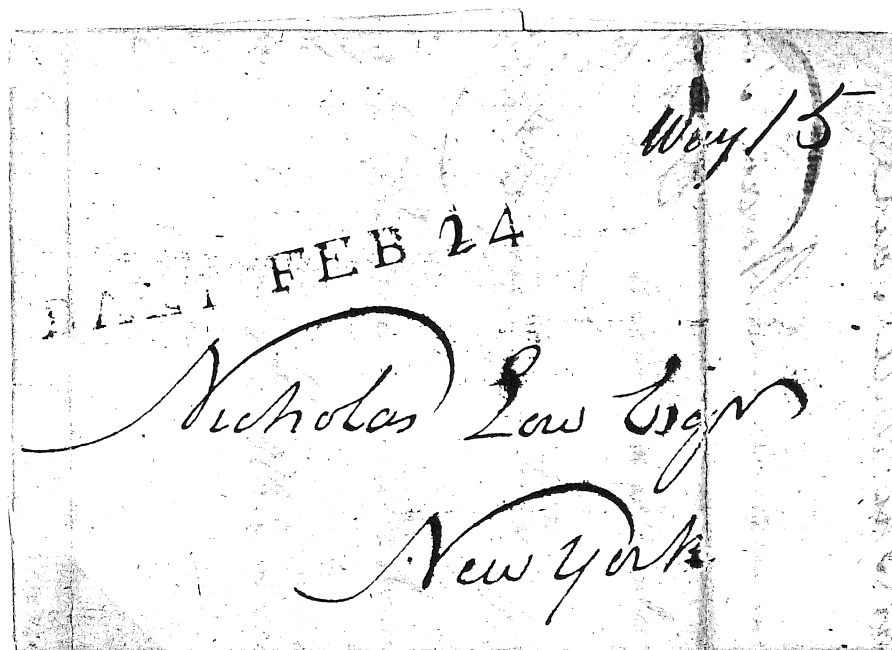 Way 15
BALT FEB 24
Nicholas Low Esqr
New York